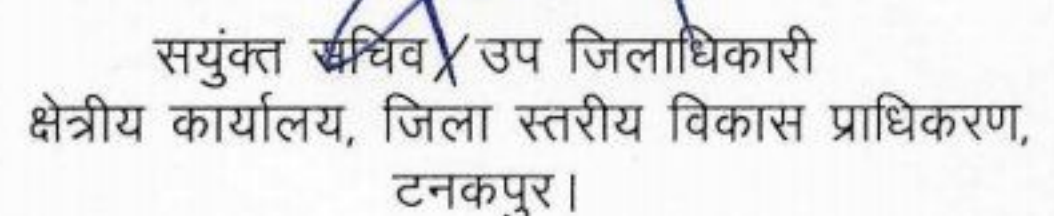 सयुंक्त सचिव/उप जिलाधिकारी
क्षेत्रीय कार्यालय, जिला स्तरीय विकास प्राधिकरण,
टनकपुर।